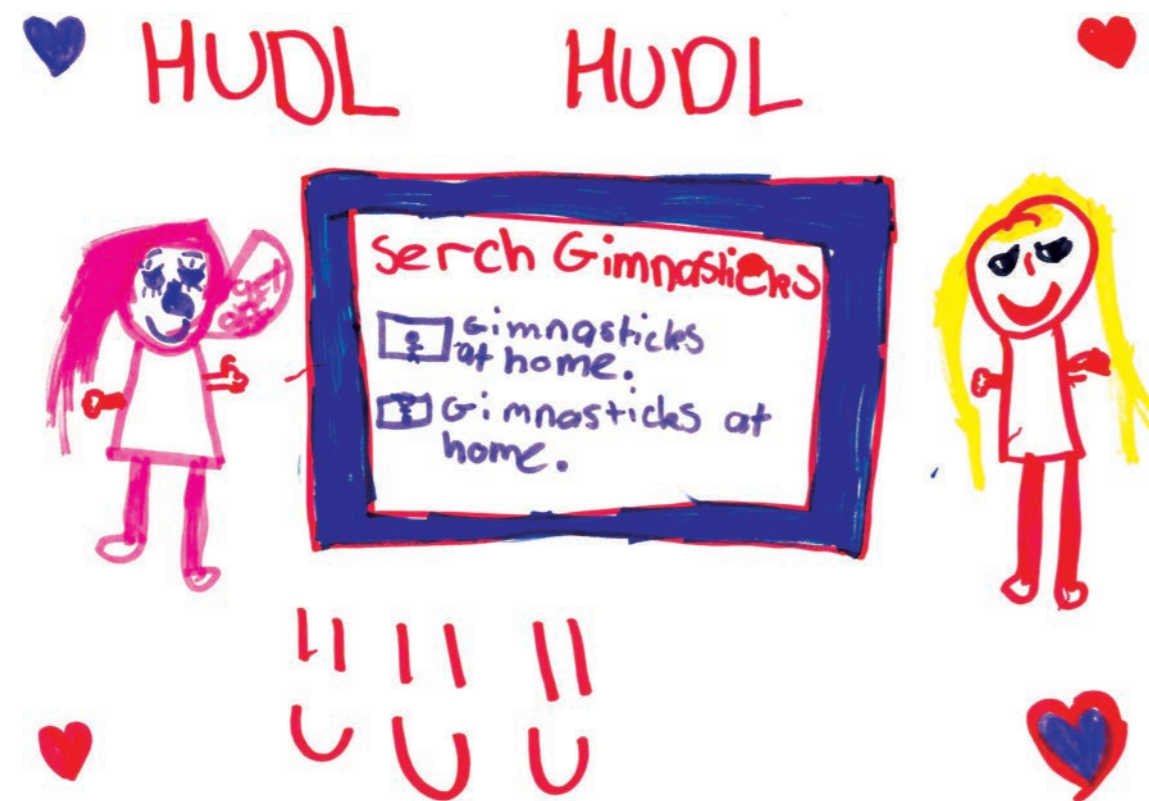 HUDL HUDL
serch Gimnasticks
Gimnasticks
at home.
Gimnasticks at
home.